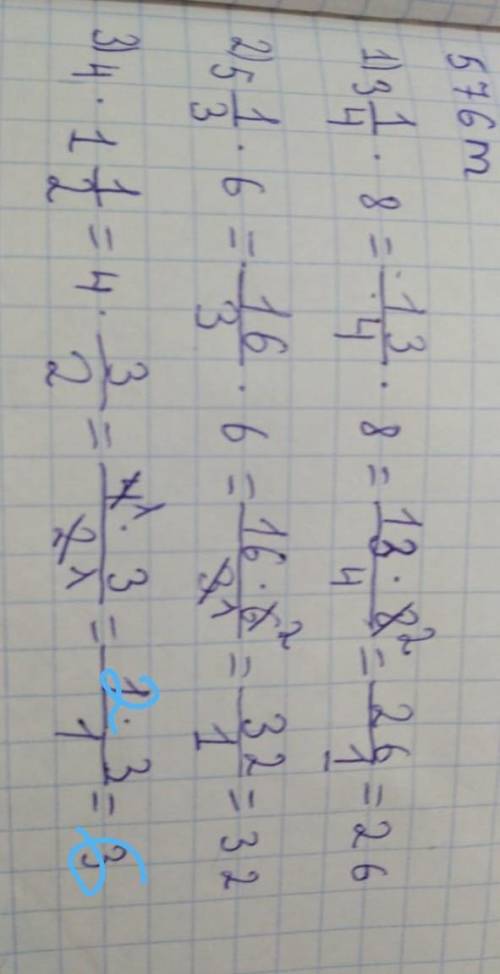 576 m
1) 3 1/4 · 8 = 13/4 · 8 = 13 · 8 2/4 = 26/1 = 26
2) 5 1/3 · 6 = 16/3 · 6 = 16 · 6 2/3 1 = 32/1 = 32
3) 4 · 1 1/2 = 4 · 3/2 = 4 1 · 3/2 1 = 2 · 3/1 = 6